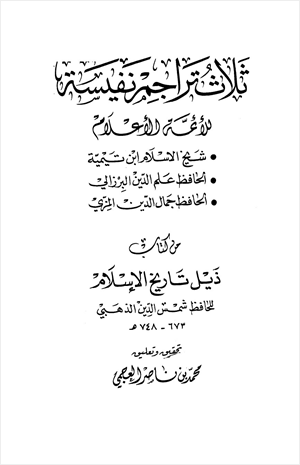 ثلاث تراجم نفيسة
للأئمة الأعلام
• شيخ الإسلام ابن تيمية
• الحافظ علم الدين البرزالي
• الحافظ جمال الدين المزي
من كتاب
ذيل تاريخ الإسلام
للحافظ شمس الدين الذهبي
٦٧٣ - ٧٤٨ هـ
تحقيق وتعليق
محمد بن ناصر العجمي